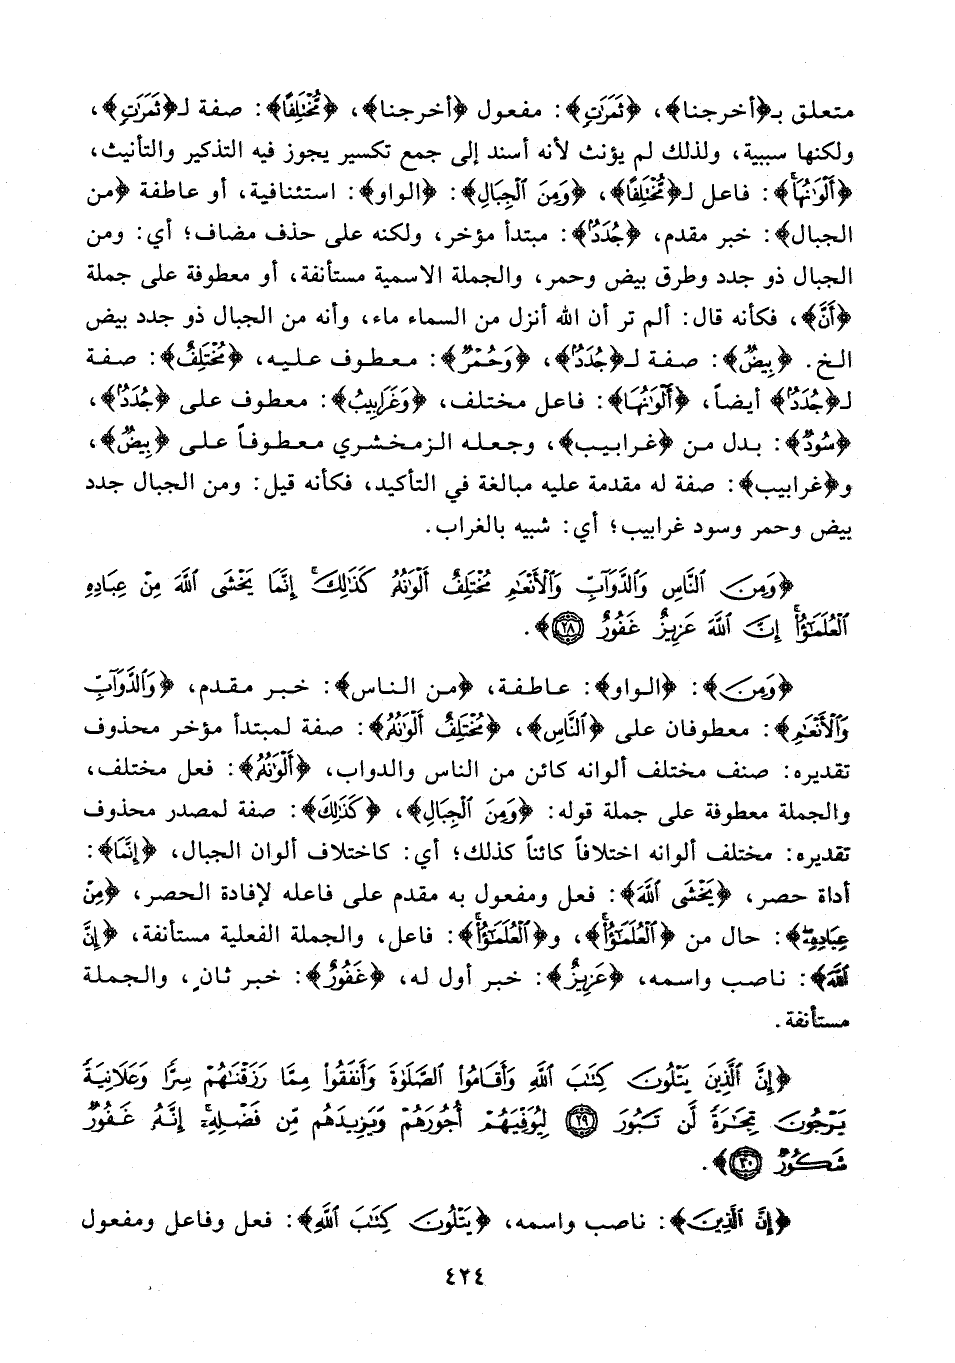 متعلق بـ﴿أخرجنا﴾، ﴿ثَمَرَٰتٍ﴾: مفعول ﴿أخرجنا﴾، ﴿مُّخْتَلِفًا﴾: صفة لـ﴿ثَمَرَٰتٍ﴾،
ولكنها سببية، ولذلك لم يؤنث لأنه أسند إلى جمع تكسير يجوز فيه التذكير والتأنيث،
﴿أَلْوَٰنُهَا﴾: فاعل لـ﴿مُّخْتَلِفًا﴾، ﴿وَمِنَ ٱلْجِبَالِ﴾: ﴿الواو﴾: استئنافية، أو عاطفة ﴿من
الجبال﴾: خبر مقدم، ﴿جُدَدٌ﴾: مبتدأ مؤخر، ولكنه على حذف مضاف؛ أي: ومن
الجبال ذو جدد وطرق بيض وحمر، والجملة الاسمية مستأنفة، أو معطوفة على جملة
﴿أَنَّ﴾، فكأنه قال: ألم تر أن الله أنزل من السماء ماء، وأنه من الجبال ذو جدد بيض
الخ. ﴿بِيضٌ﴾: صفة لـ﴿جُدَدٌ﴾، ﴿وَحُمْرٌ﴾: معطوف عليه، ﴿مُّخْتَلِفٌ﴾: صفة
لـ﴿جُدَدٌ﴾ أيضاً، ﴿أَلْوَٰنُهَا﴾: فاعل مختلف، ﴿وَغَرَابِيبُ﴾: معطوف على ﴿جُدَدٌ﴾،
﴿سُودٌ﴾: بدل من ﴿غرابيب﴾، وجعله الزمخشري معطوفاً على ﴿بِيضٌ﴾،
و﴿غرابيب﴾: صفة له مقدمة عليه مبالغة في التأكيد، فكأنه قيل: ومن الجبال جدد
بيض وحمر وسود غرابيب؛ أي: شبيه بالغراب.
﴿وَمِنَ ٱلنَّاسِ وَٱلدَّوَآبِّ وَٱلْأَنْعَٰمِ مُخْتَلِفٌ أَلْوَٰنُهُۥ كَذَٰلِكَ ۗ إِنَّمَا يَخْشَى ٱللَّهَ مِنْ عِبَادِهِ
ٱلْعُلَمَٰٓؤُا۟ ۗ إِنَّ ٱللَّهَ عَزِيزٌ غَفُورٌ ٢٨﴾.
﴿وَمِنَ﴾: ﴿الواو﴾: عاطفة، ﴿من الناس﴾: خبر مقدم، ﴿وَٱلدَّوَآبِّ
وَٱلْأَنْعَٰمِ﴾: معطوفان على ﴿ٱلنَّاسِ﴾، ﴿مُخْتَلِفٌ أَلْوَٰنُهُۥ﴾: صفة لمبتدأ مؤخر محذوف
تقديره: صنف مختلف ألوانه كائن من الناس والدواب، ﴿أَلْوَٰنُهُۥ﴾: فعل مختلف،
والجملة معطوفة على جملة قوله: ﴿وَمِنَ ٱلْجِبَالِ﴾، ﴿كَذَٰلِكَ﴾: صفة لمصدر محذوف
تقديره: مختلف ألوانه اختلافاً كائناً كذلك؛ أي: كاختلاف ألوان الجبال، ﴿إِنَّمَا﴾:
أداة حصر، ﴿يَخْشَى ٱللَّهَ﴾: فعل ومفعول به مقدم على فاعله لإفادة الحصر، ﴿مِنْ
عِبَادِهِ﴾: حال من ﴿ٱلْعُلَمَٰٓؤُا۟﴾، و﴿ٱلْعُلَمَٰٓؤُا۟﴾: فاعل، والجملة الفعلية مستأنفة، ﴿إِنَّ
ٱللَّهَ﴾: ناصب واسمه، ﴿عَزِيزٌ﴾: خبر أول له، ﴿غَفُورٌ﴾: خبر ثانٍ، والجملة
مستأنفة.
﴿إِنَّ ٱلَّذِينَ يَتْلُونَ كِتَٰبَ ٱللَّهِ وَأَقَامُوا۟ ٱلصَّلَوٰةَ وَأَنفَقُوا۟ مِمَّا رَزَقْنَٰهُمْ سِرًّا وَعَلَانِيَةً
يَرْجُونَ تِجَٰرَةً لَّن تَبُورَ ٢٩ لِيُوَفِّيَهُمْ أُجُورَهُمْ وَيَزِيدَهُم مِّن فَضْلِهِۦٓ ۚ إِنَّهُۥ غَفُورٌ
شَكُورٌ ٣٠﴾.
﴿إِنَّ ٱلَّذِينَ﴾: ناصب واسمه، ﴿يَتْلُونَ كِتَٰبَ ٱللَّهِ﴾: فعل وفاعل ومفعول
٤٢٤